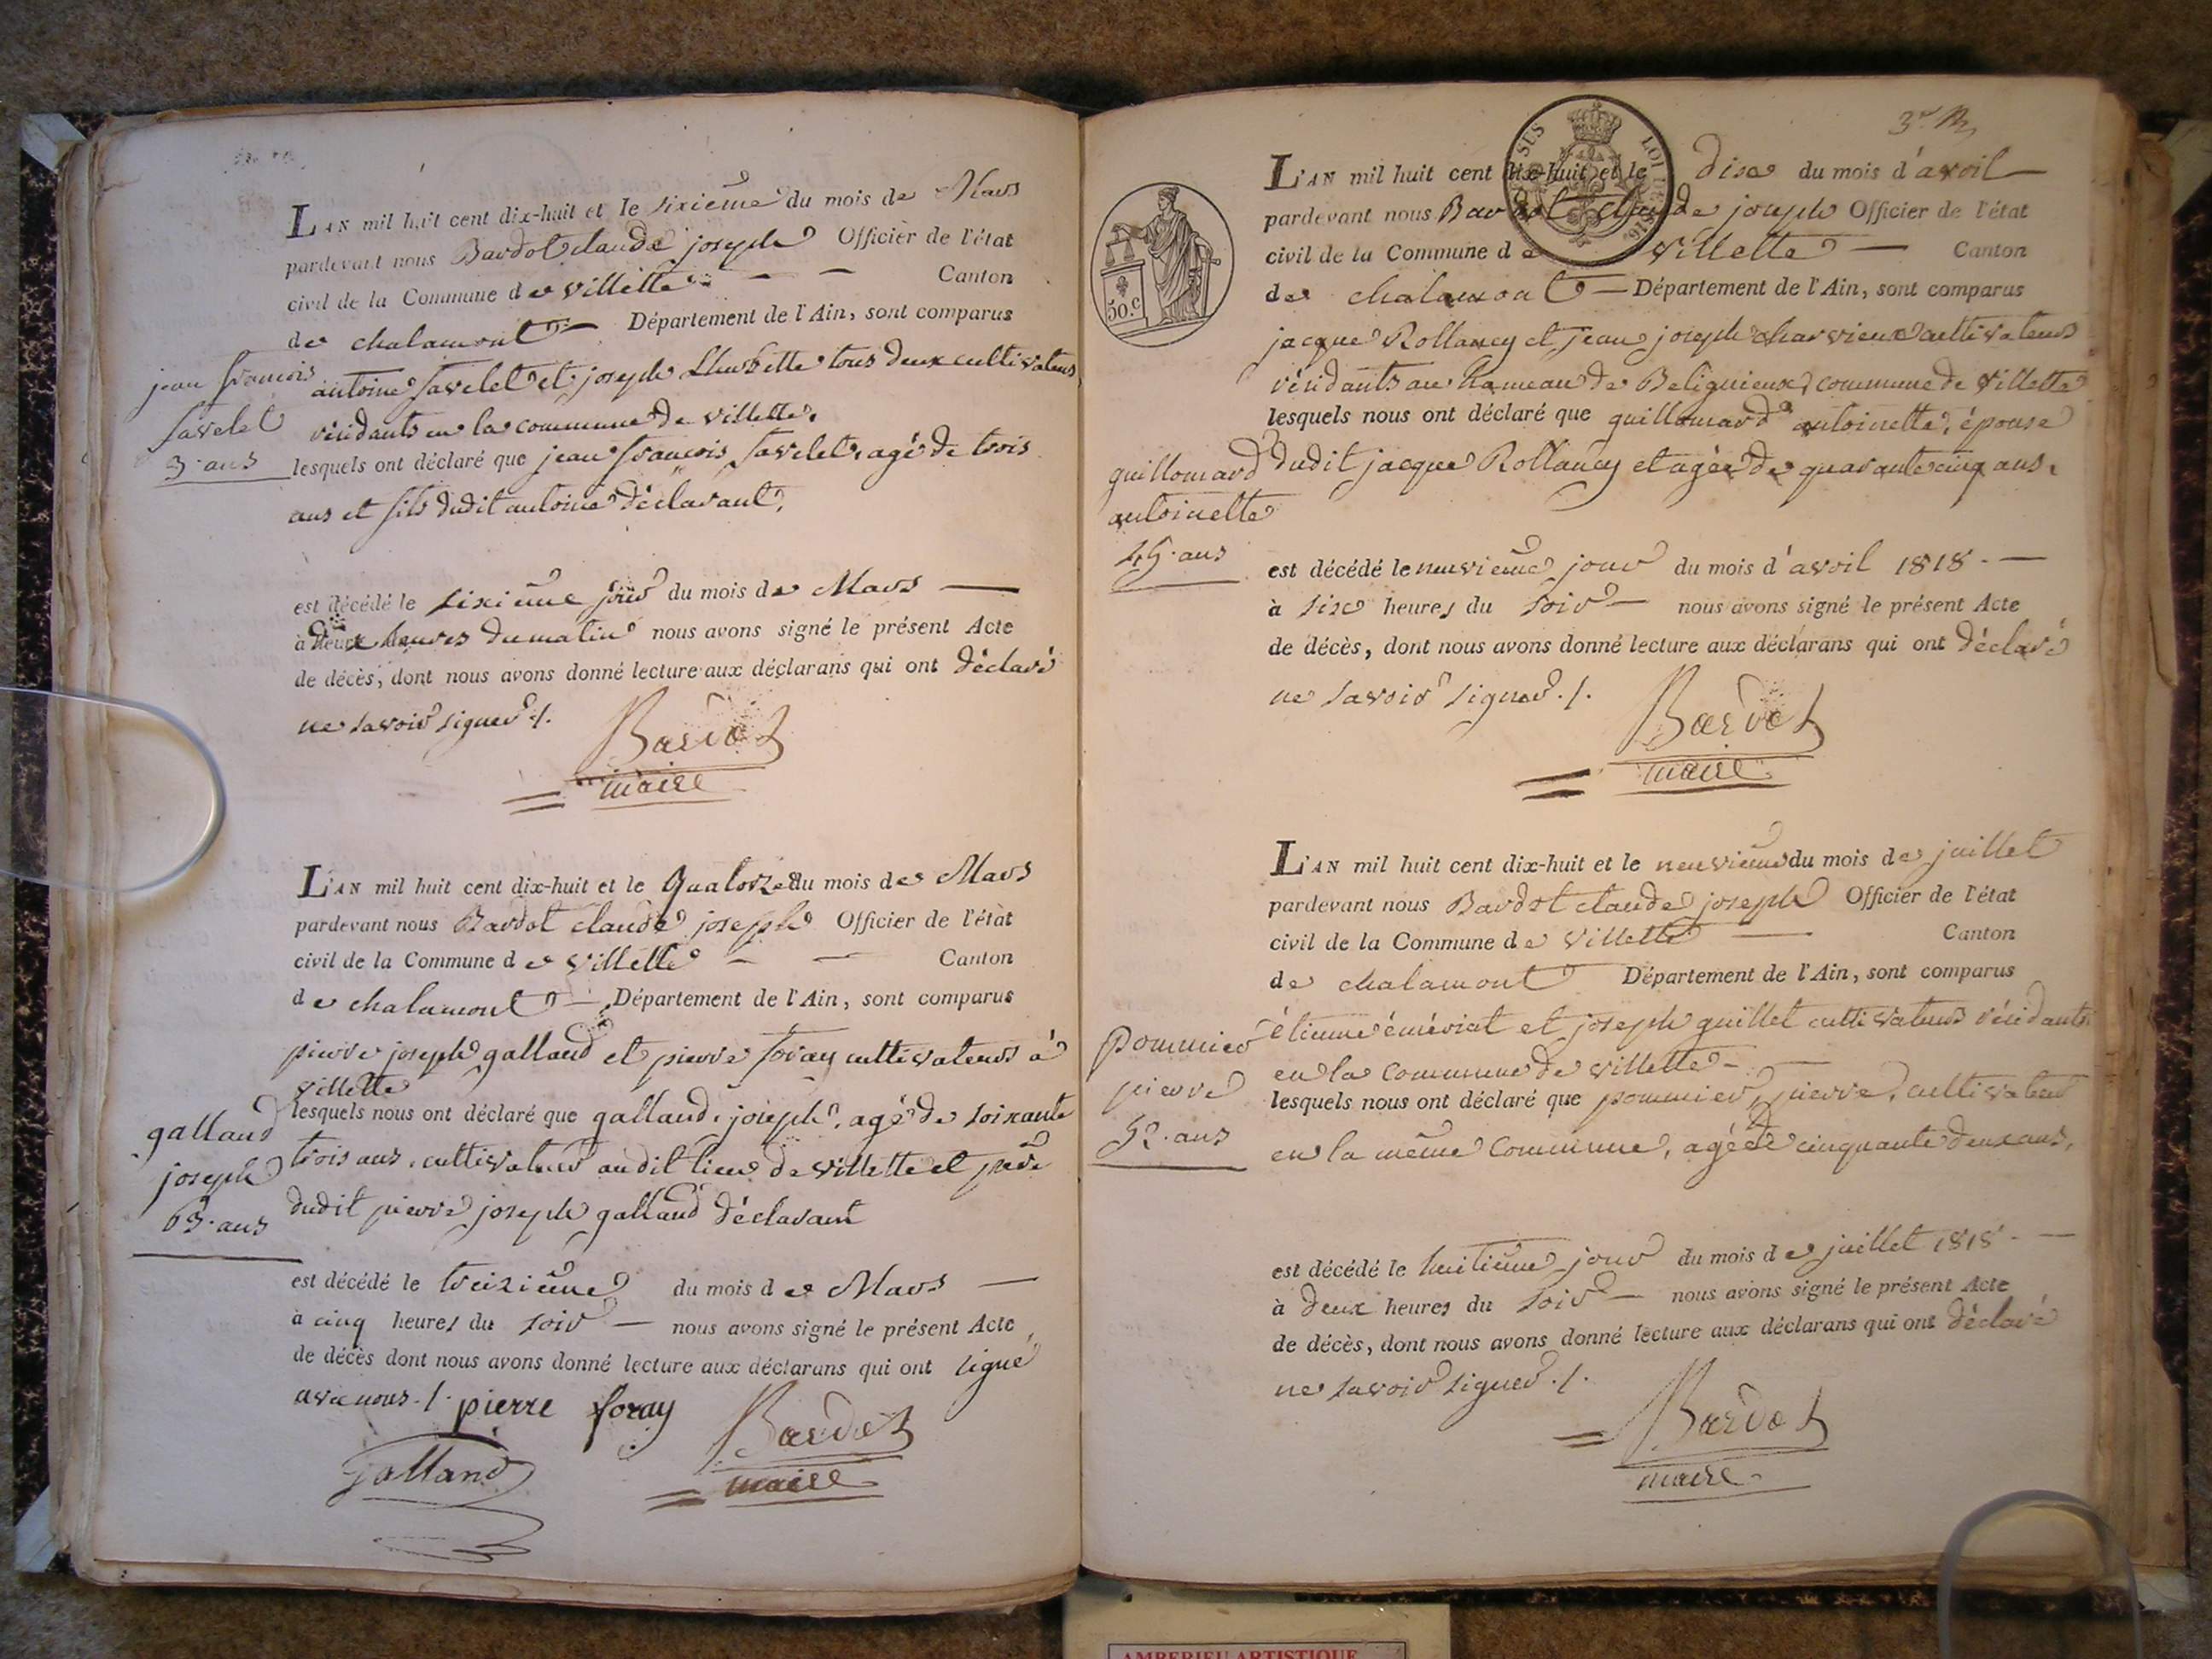 L'AN mil huit cent dix-huit et le sixieme du mois de Mars
pardevant nous Bardot claude joseph Officier de l'état
civil de la Commune de villette Canton
de chalamont Département de l'Ain, sont comparus
antoine favelet et joseph tous deux cultivateurs
résidants en la commune de villette.
lesquels ont déclaré que jean francois favelet, agé de trois
ans et fils dudit antoine déclarant,
jean francois
favelet
3. ans
est décédé le sixieme jour du mois de Mars
à deux heures du matin nous avons signé le présent Acte
de décès, dont nous avons donné lecture aux déclarans qui ont déclaré
ne savoir signer ./.
Bardot
maire
L'AN mil huit cent dix-huit et le quatorze du mois de Mars
pardevant nous Bardot claude joseph Officier de l'état
civil de la Commune de villette Canton
de chalamont Département de l'Ain, sont comparus
pierre joseph galland et pierre foray cultivateurs à
villette
lesquels nous ont déclaré que galland, joseph, agé de soixante
trois ans, cultivateur audit lieu de villette et pere
dudit pierre joseph galland déclarant
galland
joseph
63. ans
est décédé le treizieme du mois de Mars
à cinq heures du soir nous avons signé le présent Acte
de décès dont nous avons donné lecture aux déclarans qui ont signé
avec nous ./. pierre foray Bardot
Galland maire
3e
50.C
L'AN mil huit cent dix-huit et le dix du mois d'avril
pardevant nous Bardot claude joseph Officier de l'état
civil de la Commune de villette Canton
de chalamont Département de l'Ain, sont comparus
jacque Rollancy et jean joseph charvieux cultivateurs
résidants au hameau de Beliguieux commune de villette
lesquels nous ont déclaré que guillomard antoinette, épouse
dudit jacque Rollancy et agée de quarante cinq ans.
guillomard
antoinette
45. ans
est décédé le neuvieme jour du mois d'avril 1818.
à six heures du soir nous avons signé le présent Acte
de décès, dont nous avons donné lecture aux déclarans qui ont déclaré
ne savoir signer ./.
Bardot
maire
L'AN mil huit cent dix-huit et le neuvieme du mois de juillet
pardevant nous Bardot claude joseph Officier de l'état
civil de la Commune de villette Canton
de chalamont Département de l'Ain, sont comparus
étienne émériat et joseph guillet cultivateurs résidants
en la commune de villette
lesquels nous ont déclaré que pommier, pierre, cultivateur
en la même commune, agé de cinquante deux ans,
pommier
pierre
52. ans
est décédé le huitieme jour du mois de juillet 1818.
à deux heures du soir nous avons signé le présent Acte
de décès, dont nous avons donné lecture aux déclarans qui ont déclaré
ne savoir signer ./.
Bardot
maire
AMBERIEU ARTISTIQUE